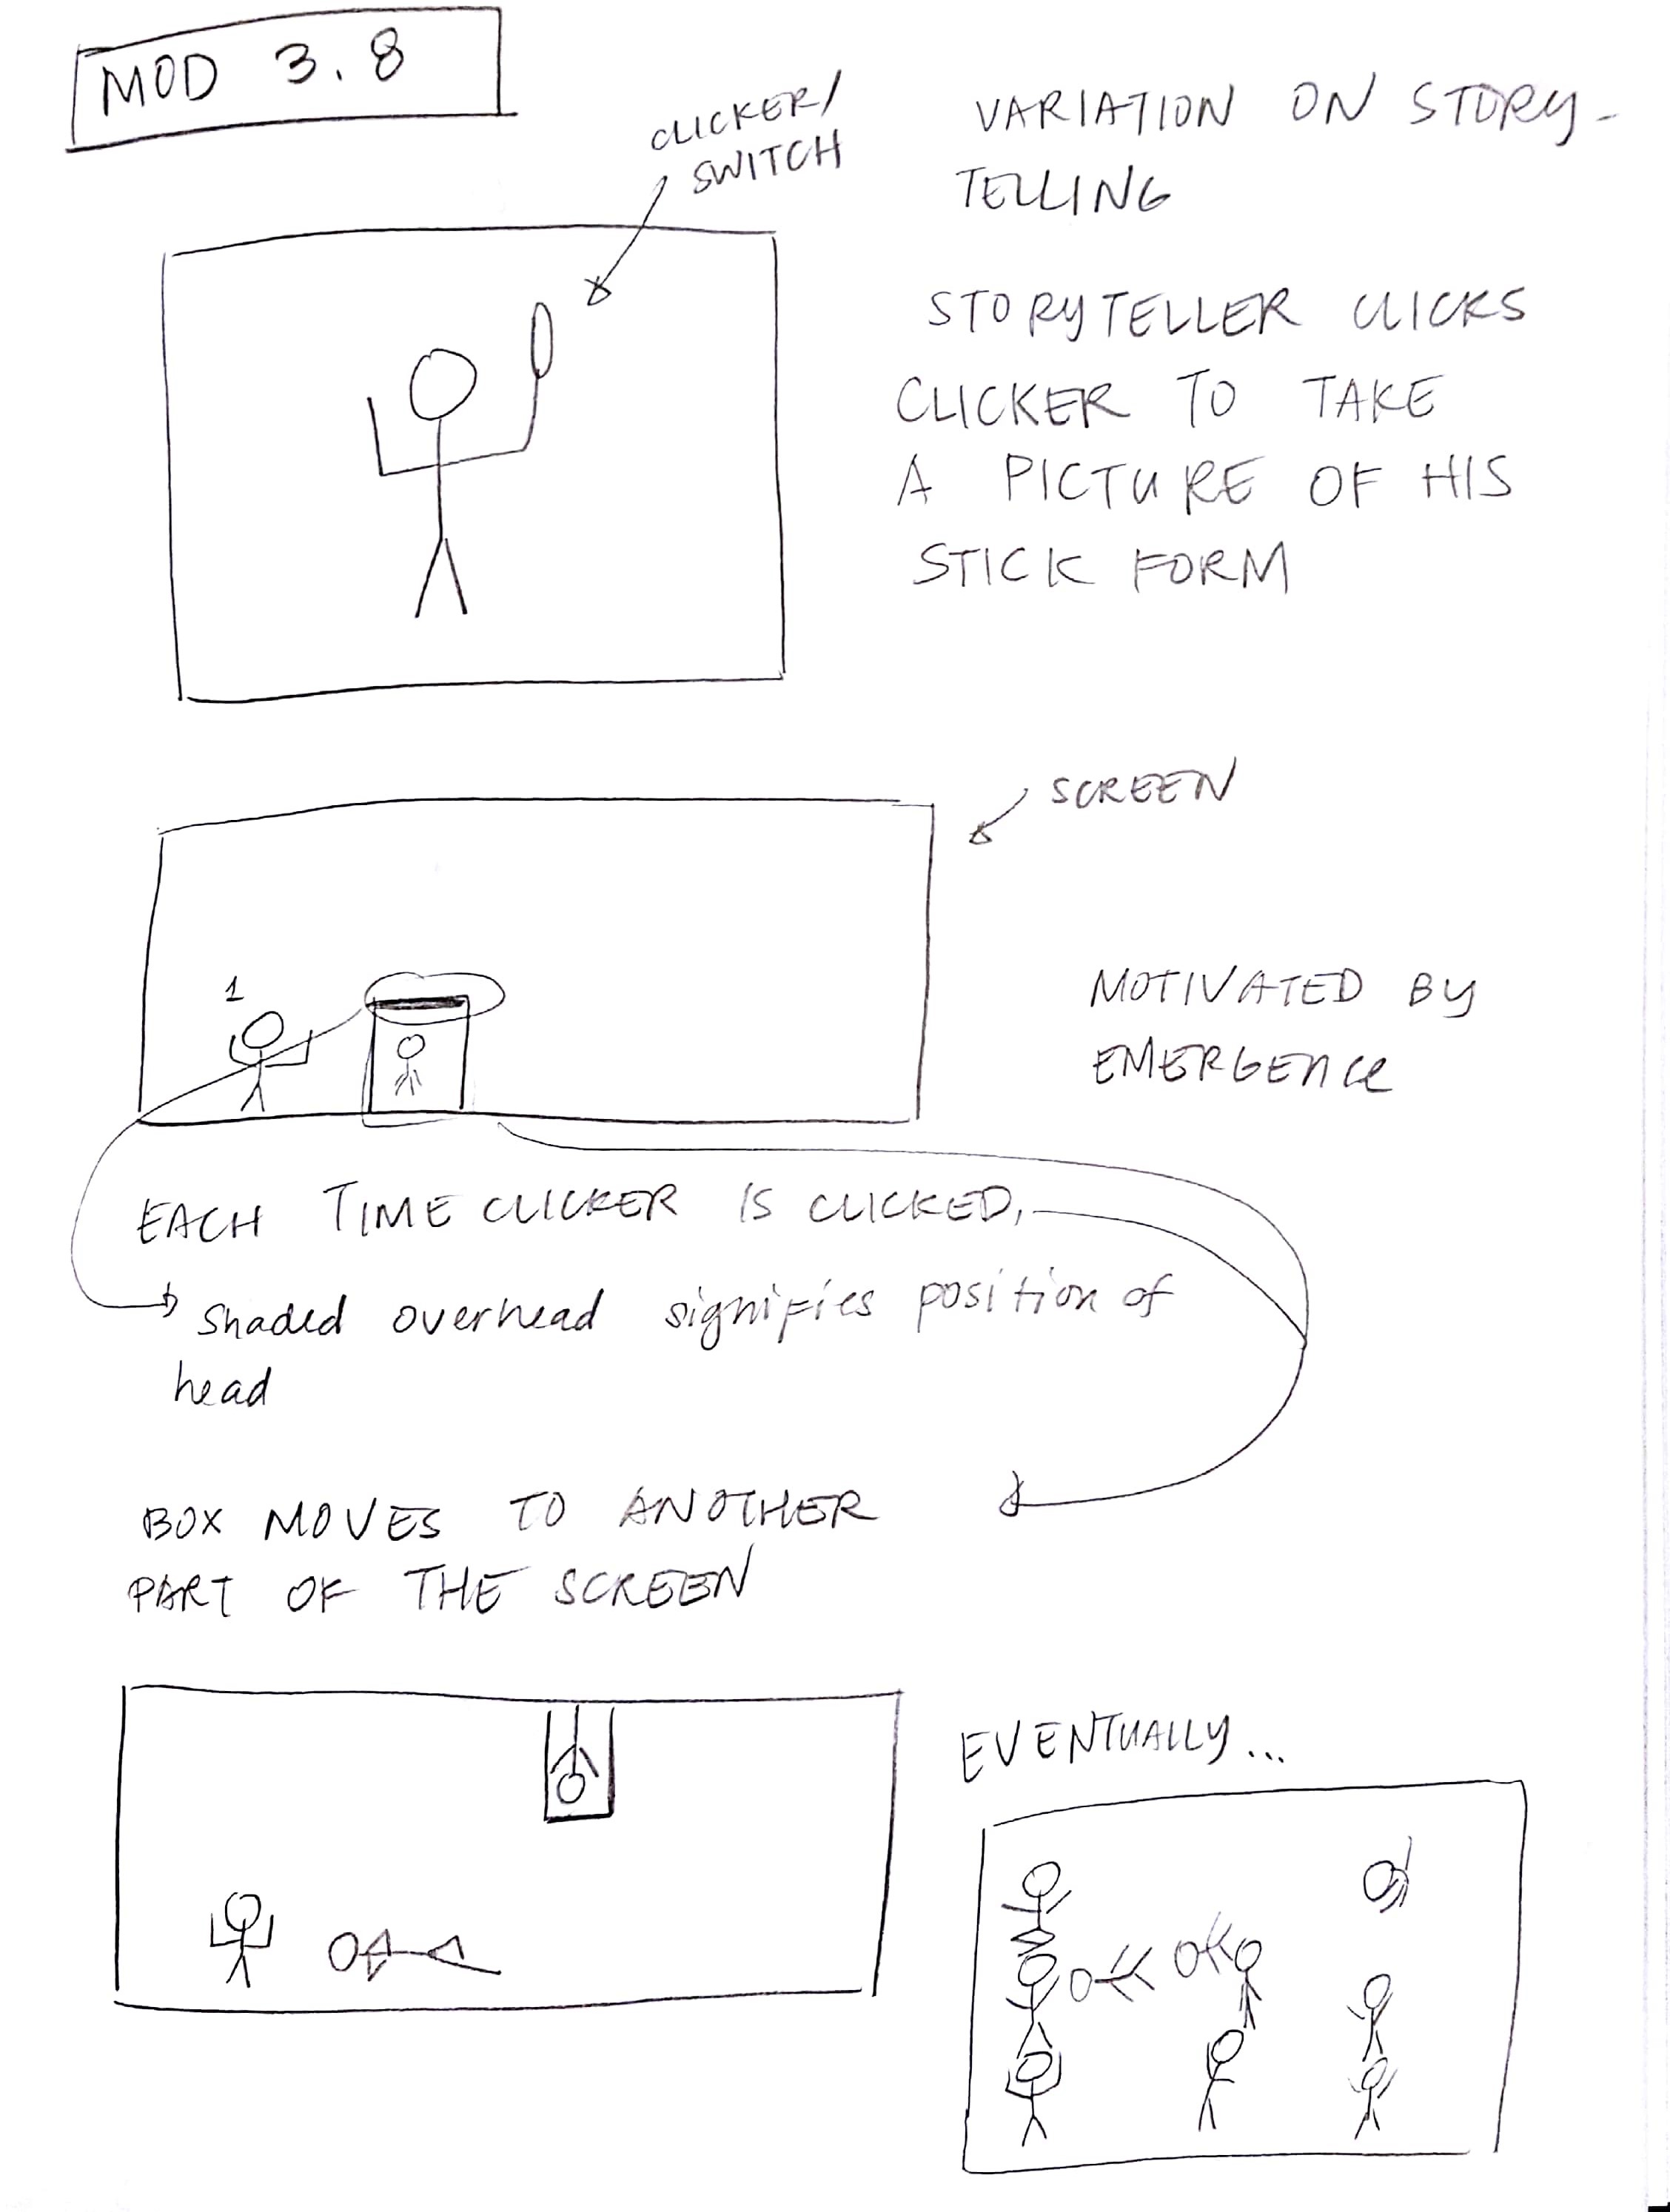 MOD 3.8
CLICKER/
SWITCH
VARIATION ON STORY-
TELLING
STORYTELLER CLICKS
CLICKER TO TAKE
A PICTURE OF HIS
STICK FORM
SCREEN
1
MOTIVATED BY
EMERGENCE
EACH TIME CLICKER IS CLICKED,
Shaded overhead signifies position of
head
BOX MOVES TO ANOTHER
PART OF THE SCREEN
EVENTUALLY...